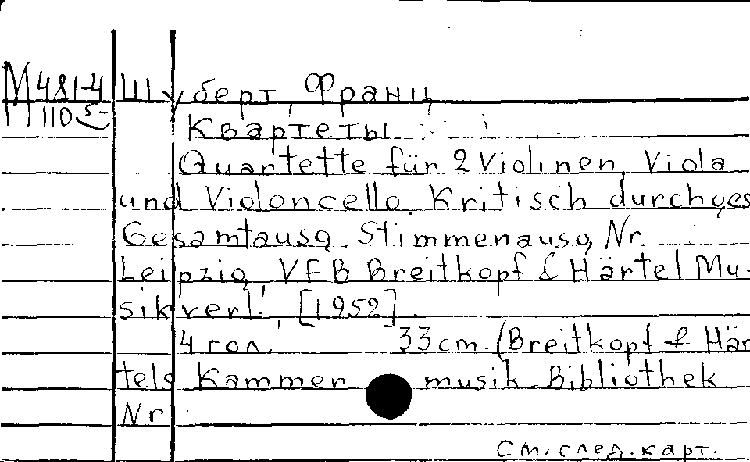 М481-4 Шуберт, Франц
110 5- Квартеты
Quartette für 2 Violinen, Viola
und Violoncello. Kritisch durchges
Gesamtausg. Stimmenausg. Nr.
Leipzig, VEB Breitkopf & Härtel Mu-
sikverl., [1952].
4 гол. 33 cm (Breitkopf & Här
tels Kammer musik Bibliothek
Nr
См. след. карт.